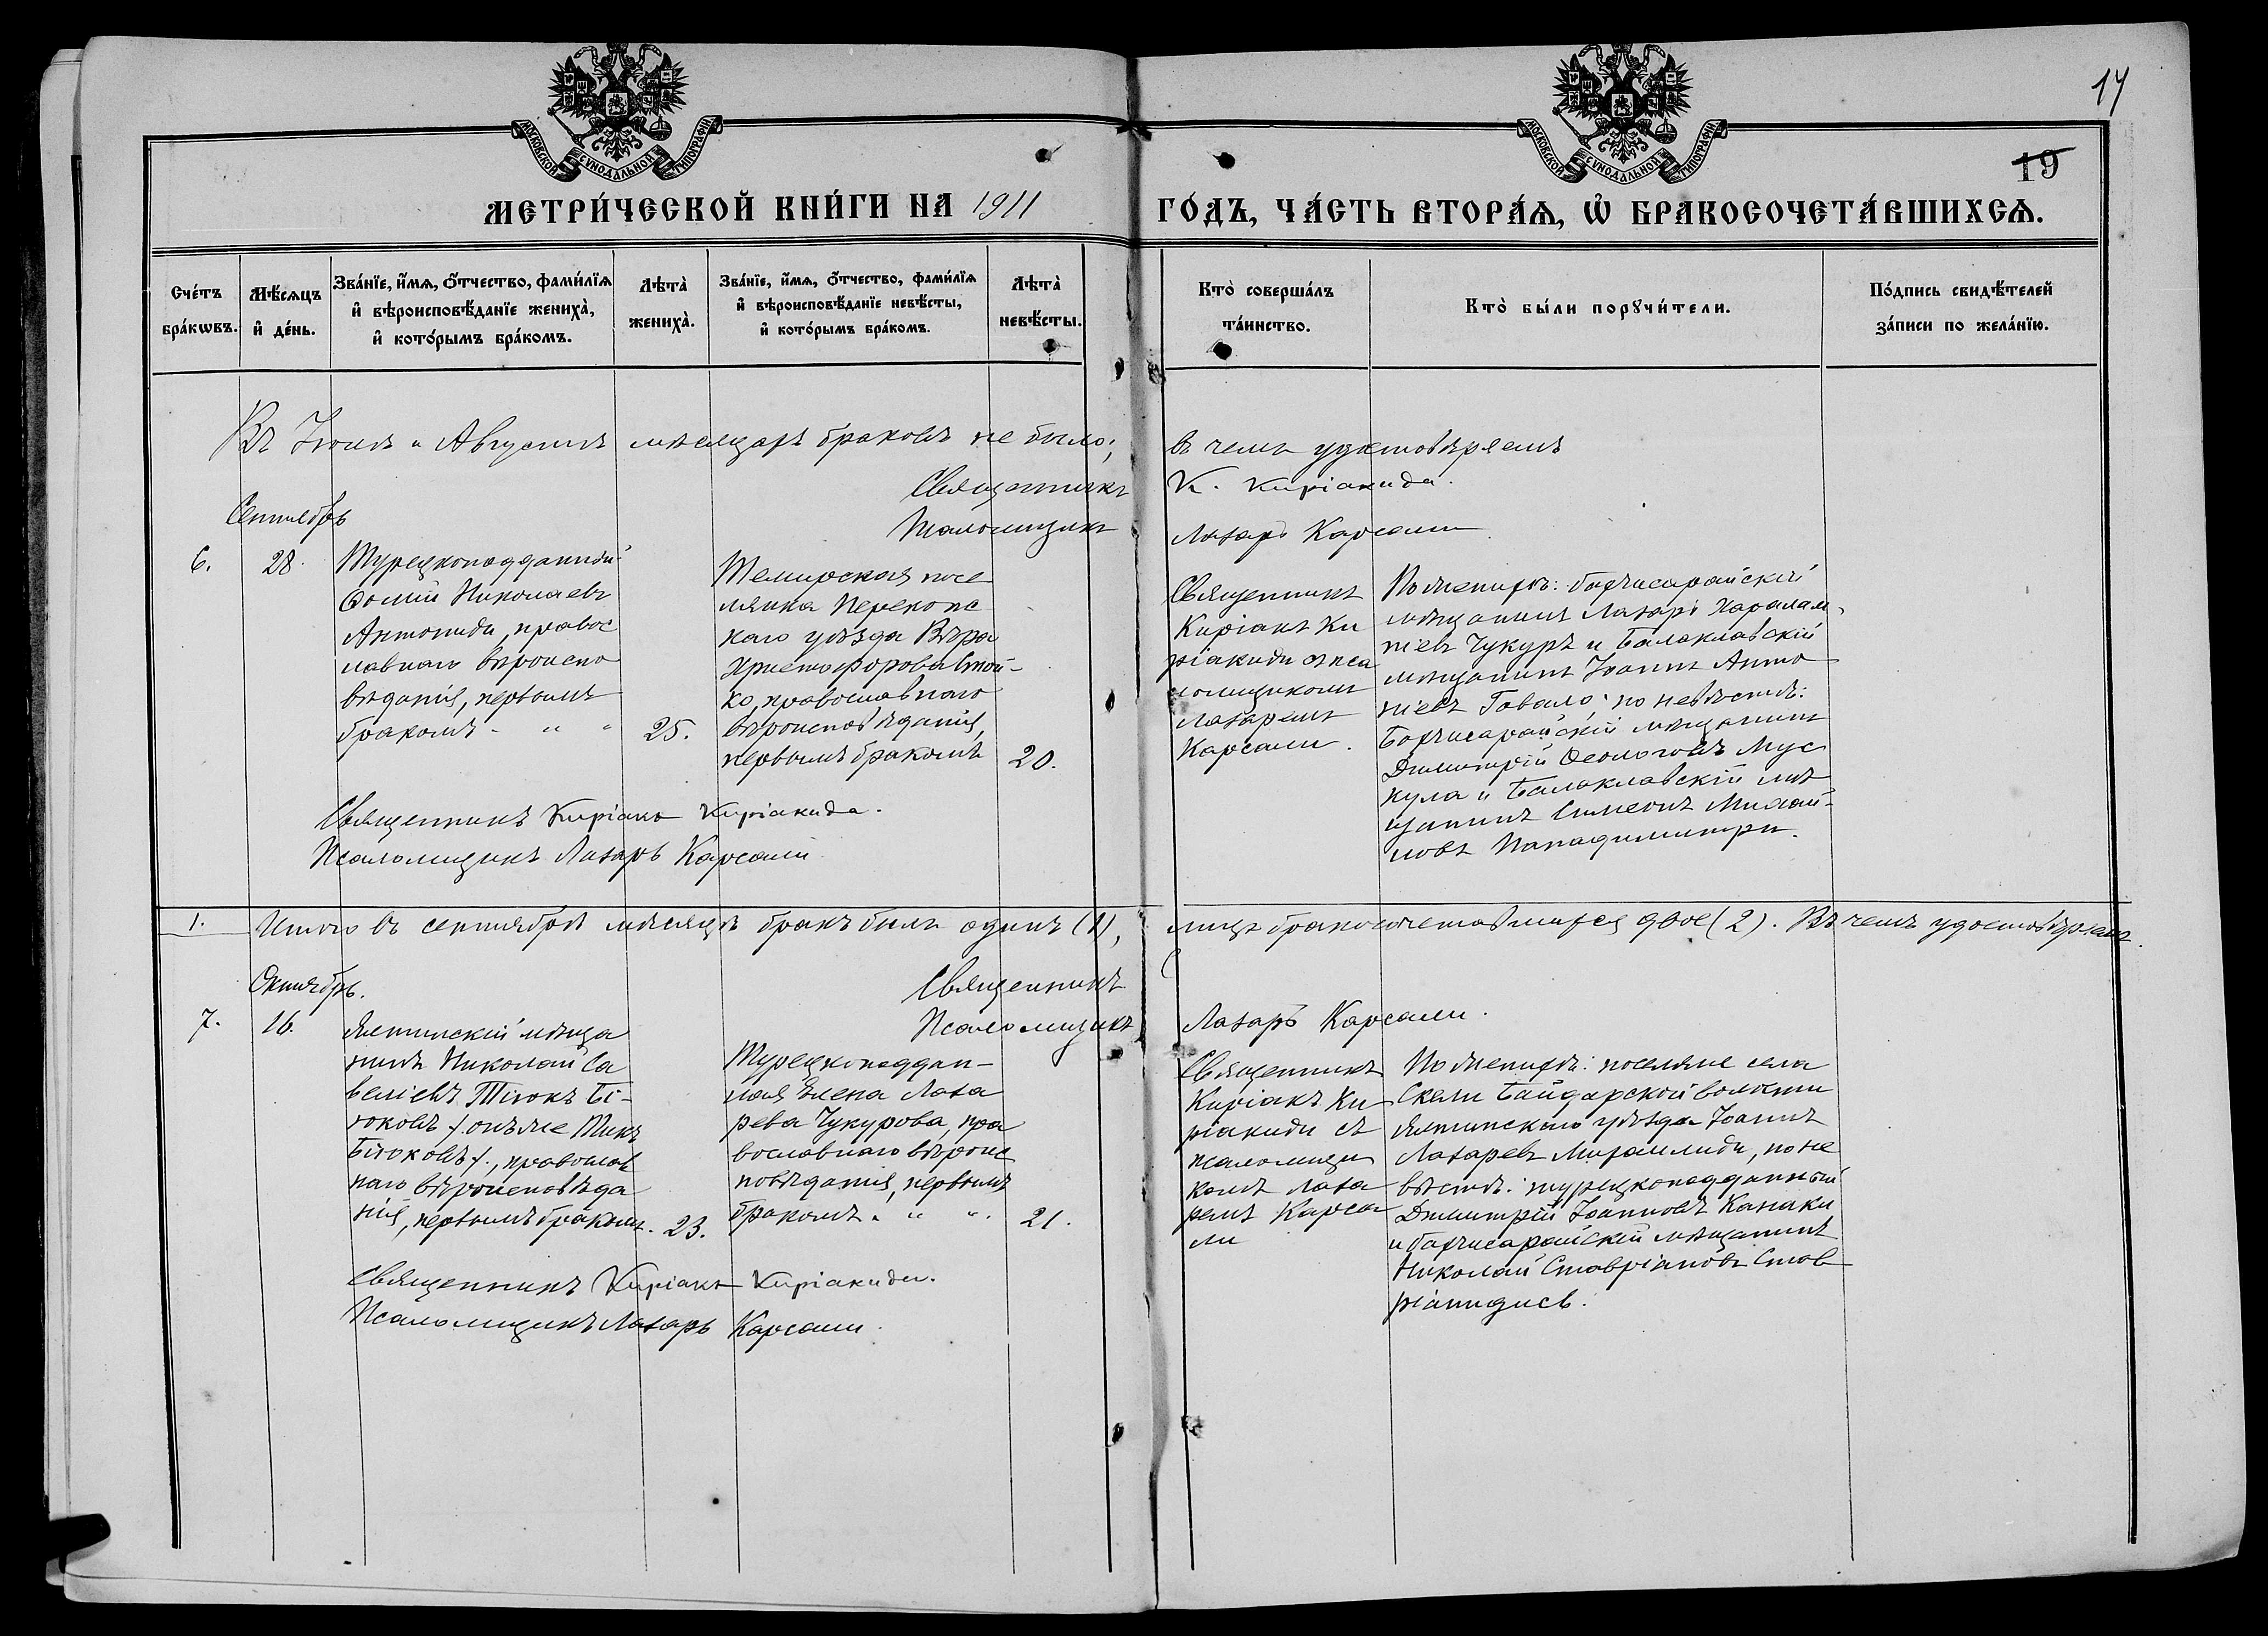 17
19
МОСКОВСКОЙ СУНОДАЛЬНОЙ ТИПОГРАФІИ
МОСКОВСКОЙ СУНОДАЛЬНОЙ ТИПОГРАФІИ
МЕТРИ́ЧЕСКОЙ КНИ́ГИ НА 1911 ГО́ДЪ, ЧА́СТЬ ВТОРА́Ѧ, Ѡ҆ БРАКОСОЧЕТА́ВШИХСѦ.
Сче́тъ
бра́кѡвъ.
Мѣ́сѧцъ
и҆ де́нь.
Зва́нїе, и҆́мѧ, ѻ҆́тчество, фами́лїѧ
и҆ вѣроисповѣ́данїе жениха̀,
и҆ кото́рымъ бра́комъ.
Лѣта̀
жениха̀.
Зва́нїе, и҆́мѧ, ѻ҆́тчество, фами́лїѧ
и҆ вѣроисповѣ́данїе невѣ́сты,
и҆ кото́рымъ бра́комъ.
Лѣта̀
невѣ́сты.
Кто̀ соверша́лъ
та́инство.
Кто̀ бы́ли порꙋчи́тели.
По́дпись свидѣ́телей
за́писи по жела́нїю.
Въ Іюлѣ и Августѣ мѣсяцахъ браковъ не было; въ чемъ удостовѣряемъ
Священникъ К. Киріакиди.
Псаломщикъ Лазарь Карсали.
Сентябрь
6.
28.
Турецкоподданный
Ѳомій Николаевъ
Антониди, правос
лавнаго вѣроиспо
вѣданія, первымъ
бракомъ - " "
25.
поse
лянка Перекопс
каго уѣзда Вѣра
Христофорова Стой-
ко, православнаго
вѣроисповѣданія,
первымъ бракомъ
20.
Священникъ
Киріакъ Ки
ріакиди съ пса
ломщикомъ
Лазаремъ
Карсали.
По женихѣ: бахчисарайскій
мѣщанинъ Лазарь Харалам
піевъ Чукуръ и Балаклавскій
мѣщанинъ Іоаннъ Анто
ніевъ Говало; по невѣстѣ:
Бахчисарайскій мѣщанинъ
Димитрій Ѳеологовъ Мус
кула и Балаклавскій мѣ
щанинъ Симеонъ Михай-
ловъ Пападимитри.
Священникъ Киріакъ Киріакиди.
Псаломщикъ Лазарь Карсали.
1. Итого въ сентябрѣ мѣсяцѣ бракъ былъ одинъ (1), лицъ бракосочетавшихся двое (2). Въ чемъ удостовѣряемъ.
Октябрь.
Священникъ
Псаломщикъ Лазарь Карсали.
7.
16.
Ялтинскій мѣща
нинъ Николай Са
веліевъ Тіюкъ Бі-
юковъ /. онъ же
Біюковъ /., православ
наго вѣроисповѣда
нія, первымъ бракомъ.
23.
Турецкоподдан-
ная Елена Лаза
рева Чукурова, пра
вославнаго вѣроис
повѣданія, первымъ
бракомъ. " ".
21.
Священникъ
Киріакъ Ки
ріакиди съ
псаломщи
комъ Лаза
ремъ Карса
ли
По женихѣ: поселяне села
Скели Байдарской волости
Ялтинскаго уѣзда Іоаннъ
Лазаревъ Михаилиди, по не
вѣстѣ: турецкоподданный
Димитрій Іоанновъ Канаки
и бахчисарайскій мѣщанинъ
Николай Ставріановъ Став
ріанидисъ.
Священникъ Киріакъ Киріакиди.
Псаломщикъ Лазарь Карсали.